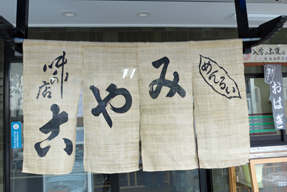 めんるい
みや古
味の店
おはぎ